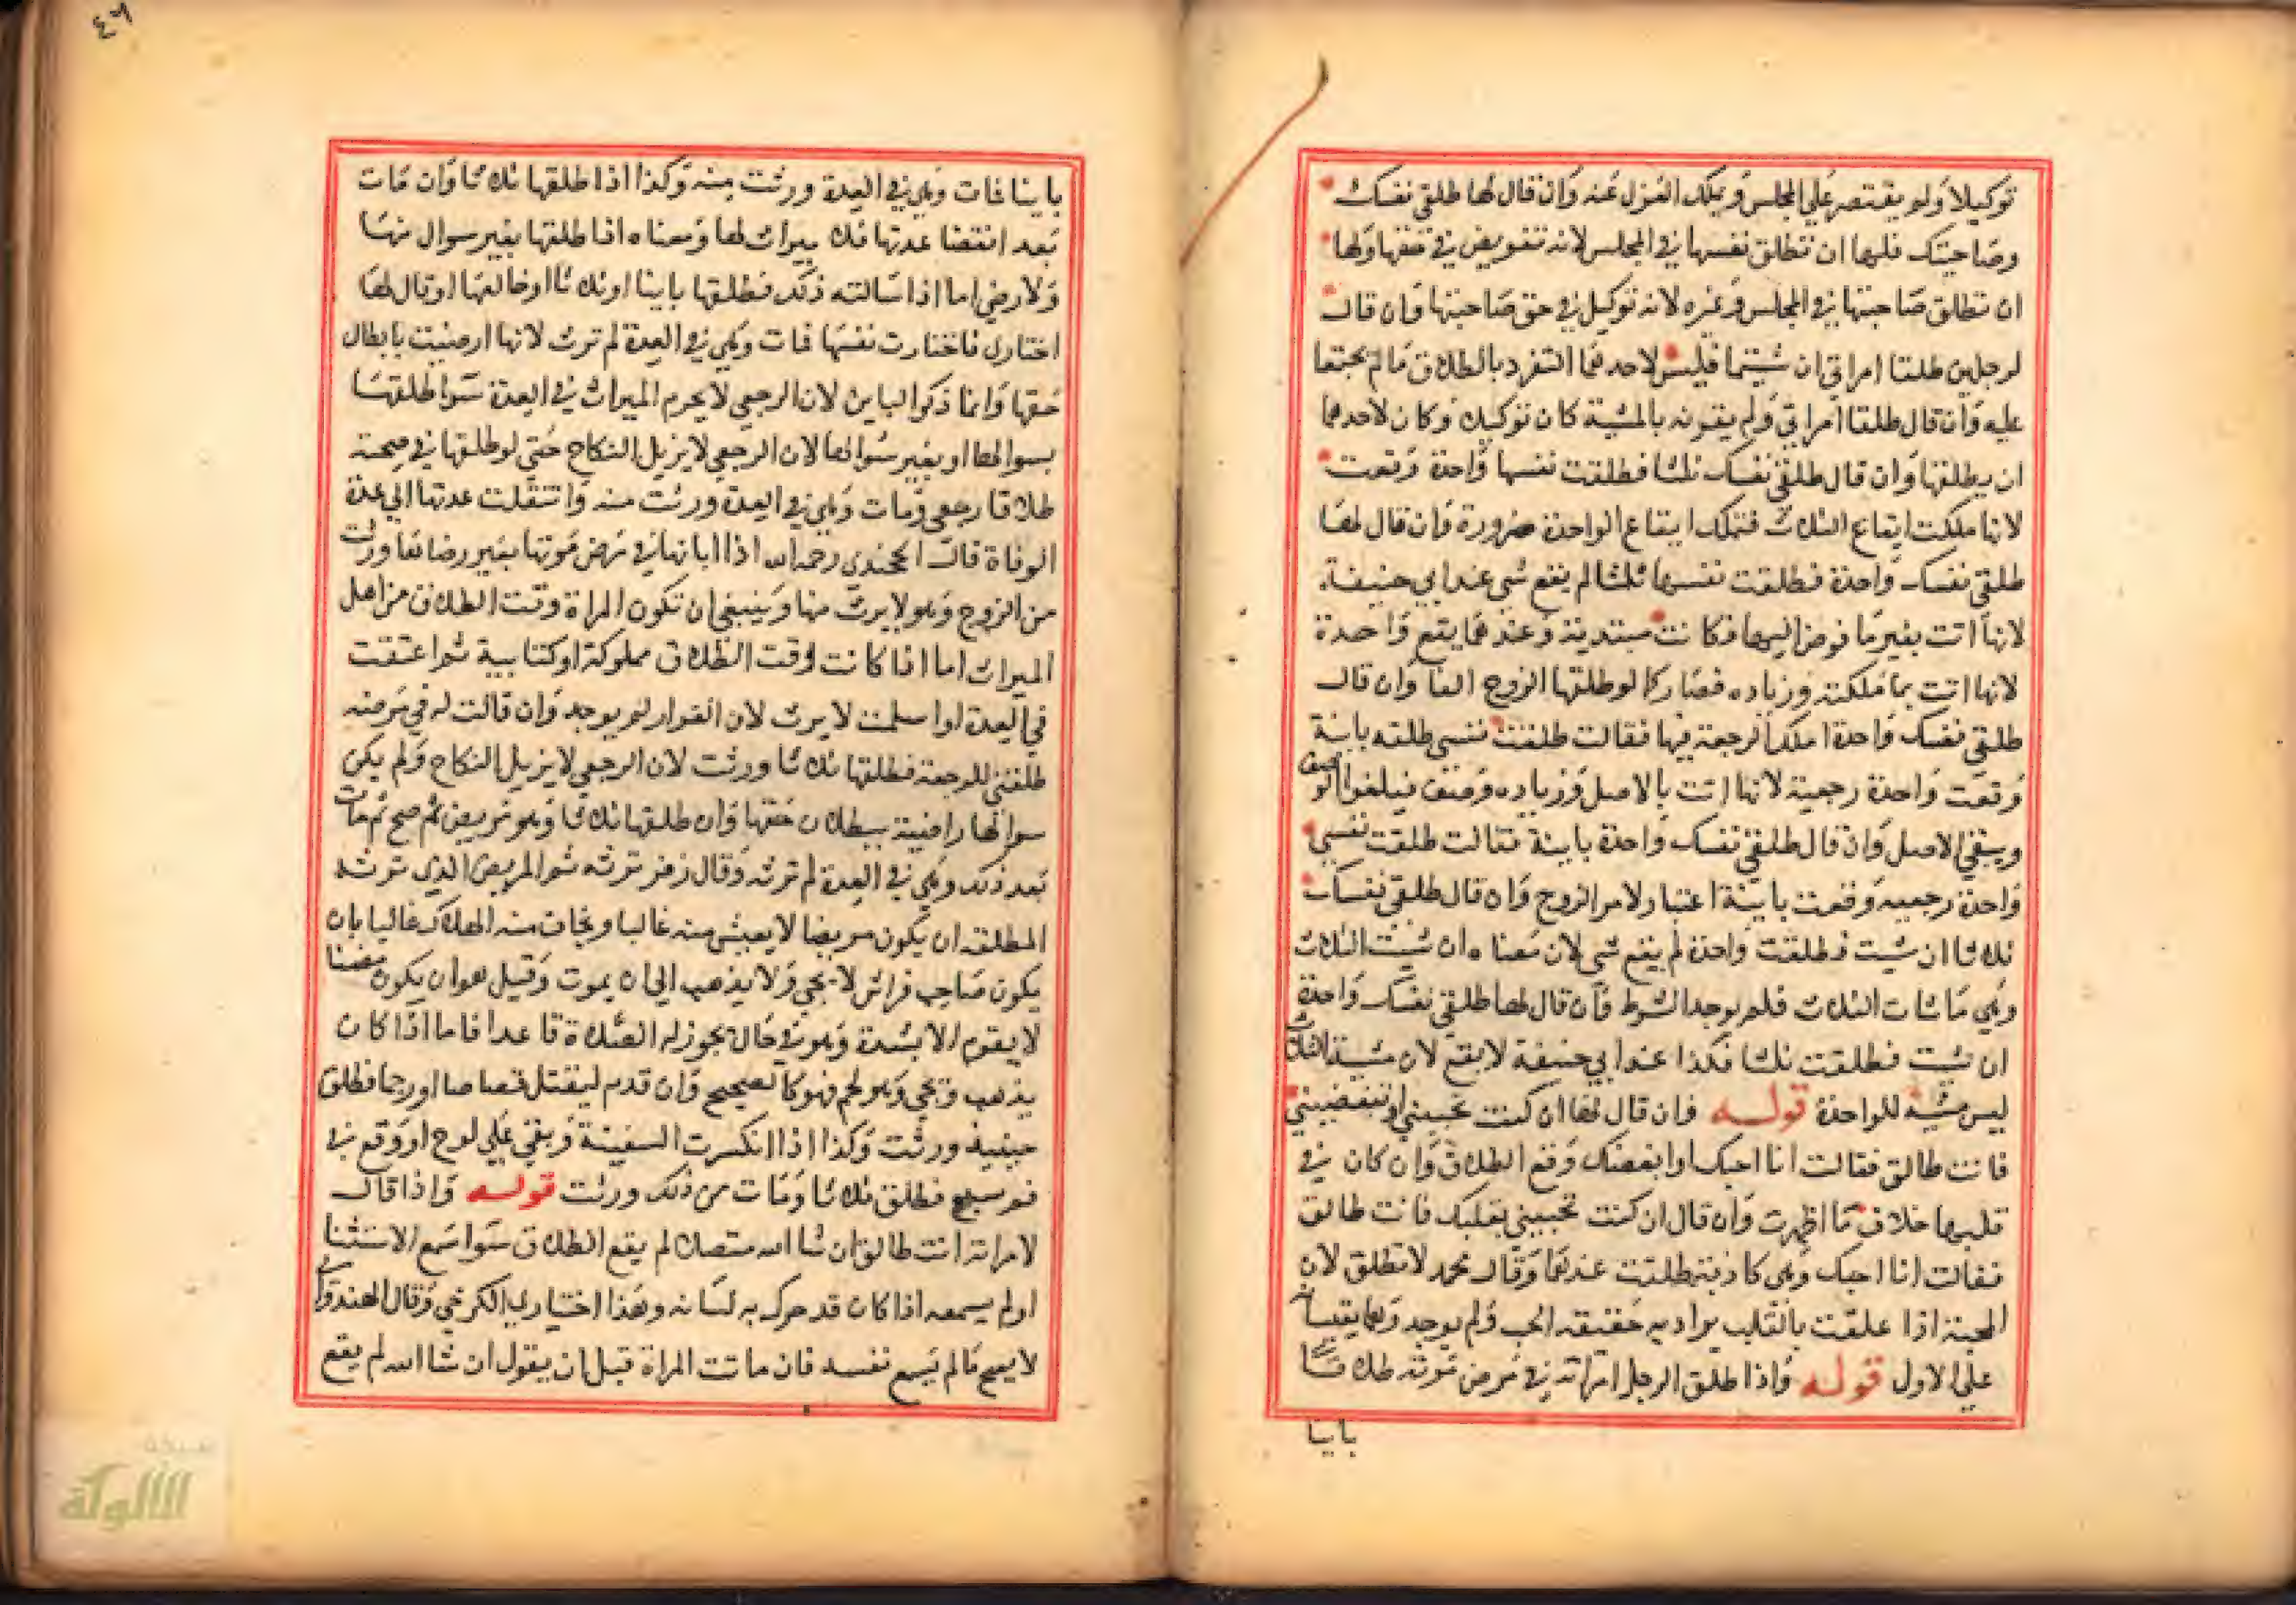 توكيلا ولو يقتصر على المجلس ويملك العزل عنه وان قال لها طلقي نفسك
وصاحبتك فلها ان تطلق نفسها في المجلس لانه تفويض في حقها ولها
ان تطلق صاحبتها في المجلس وغيره لانه توكيل في حق صاحبتها وان قال
لرجلين طلقا امراتي ان شيتما فليس لاحدهما التفرد بالطلاق ما لم يجتمعا
عليه وان قال طلقا امراتي ولم يقرنه بالمشية كان توكيلا وكان لاحدهما
ان يطلقها وان قال طلقي نفسك ثلثا فطلقت نفسها واحدة وقعت
لانها ملكت ايقاع الثلاث فتملك ايقاع الواحدة ضرورة وان قال لها
طلقي نفسك واحدة فطلقت نفسها ثلثا لم يقع شي عند ابي حنيفة
لانها اتت بغير ما فوض اليها فكانت مبتدية وعندهما يقع واحدة
لانها اتت بما ملكته وزيادة فصار كما لو طلقها الزوج الفا وان قال
طلقي نفسك واحدة املك الرجعة فيها فقالت طلقت نفسي طلقه باينة
وقعت واحدة رجعية لانها اتت بالاصل وزياده وصف فيلغوا الوصف
ويبقي الاصل وان قال طلقي نفسك واحدة باينة فقالت طلقت نفسي
واحدة رجعيه وقعت باينة اعتبار لامر الزوج وان قال طلقي نفسك
ثلاثا ان شيت فطلقت واحدة لم يقع شي لان معناه ان شيت الثلاث
وهي ما شات الثلاث فلم يوجد الشرط وان قال لها طلقي نفسك واحدة
ان شيت فطلقت ثلثا فكذا عند ابي حنيفة لا يقع لان مشية الثلاث
ليس مشية للواحدة قوله وان قال لها ان كنت تحبيني او تبغضيني
فانت طالق فقالت انا احبك او ابغضك وقع الطلاق وان كان في
قلبها خلاف ما اظهرت وان قال ان كنت تحبيني بقلبك فانت طالق
فقالت انا احبك وهي كاذبة طلقت عندهما وقال محمد لا تطلق لان
المحبة اذا علقت بالقلب يراد به حقيقة الحب ولم يوجد وهما يقيسانه
على الاول قوله واذا طلق الرجل امراته في مرض موته طلاقا
باينا
٤٦
باينا فمات وهي في العدة ورثت منه وكذا اذا طلقها ثلاثا وان مات
بعد انقضا عدتها فلا ميراث لها ومعناه اذا طلقها بغير سوال منها
ولا رضي اما اذا سالته ذلك فطلقها باينا او ثلاثا او خالعها او قال لها
اختاري فاختارت نفسها فمات وهي في العدة لم ترث لانها ارضيت بابطال
حقها وانما ذكر الباين لان الرجعي لا يحرم الميراث في العدة سوا طلقها
بسوالها او بغير سوالها لان الرجعي لا يزيل النكاح حتي لو طلقها في صحته
طلاقا رجعي ومات وهي في العدة ورثت منه وانتقلت عدتها الي عدة
الوفاة قال الخجندي رحمه الله اذا ابانها في مرض موتها بغير رضاها ورثت
من الزوج وهو لا يرث منها وينبغي ان تكون المراة وقت الطلاق من اهل
الميراث اما اذا كانت وقت الطلاق مملوكة او كتابية ثم اعتقت
في العدة او اسلمت لا يرث لان الفرار لم يوجد وان قالت له في مرضه
طلقني للرجعة فطلقها ثلاثا ورثت لان الرجعي لا يزيل النكاح ولم يكن
سوالها راضية ببطلان حقها وان طلقها ثلاثا وهو مريض ثم صح ثم مات
بعد ذلك وهي في العدة لم ترثه وقال زفر ترثه ثم المريض الذي ترثه
المطلقة ان يكون مريضا لا يعيش منه غالبا ويخاف منه الهلاك غالبا بان
يكون صاحب فراش لا يجي ولا يذهب الي ان يموت وقيل هو ان يكون مضنا
لا يقوم الا بشدة وهو في حال يجوز له الصلاة قاعدا فاما اذا كان
يذهب ويجي وهو يحم فهو كالصحيح وان قدم ليقتل قصاصا او رجما فطلق
حينيذ ورثت وكذا اذا انكسرت السفينة وبقي علي لوح او وقع في
فم سبع فطلق ثلاثا ومات من ذلك ورثت قوله واذا قال
لامراته انت طالق ان شا الله متصلا لم يقع الطلاق سوا سمع الاستثنا
او لم يسمعه اذا كان قد حرك به لسانه وهذا اختيار الكرخي وقال الهندواني
لا يصح ما لم يسمع نفسه فان ماتت المراة قبل ان يقول ان شا الله لم يقع
شبكة
الألوكة